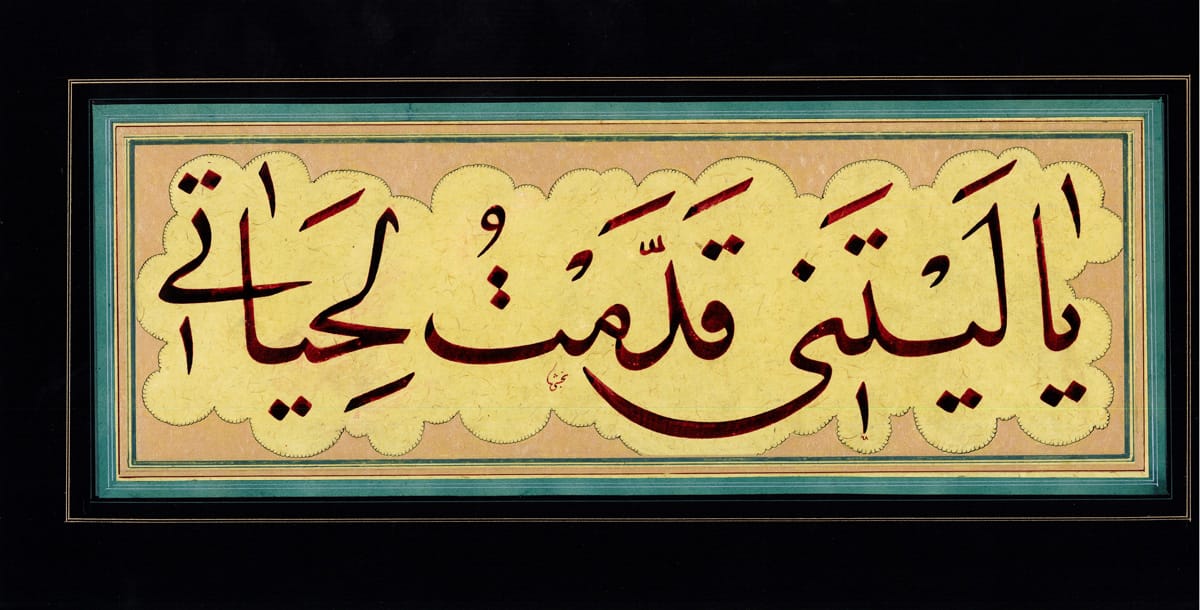 يا لَيْتَنٖى قَدَّمْتُ لِحَيَاتٖى